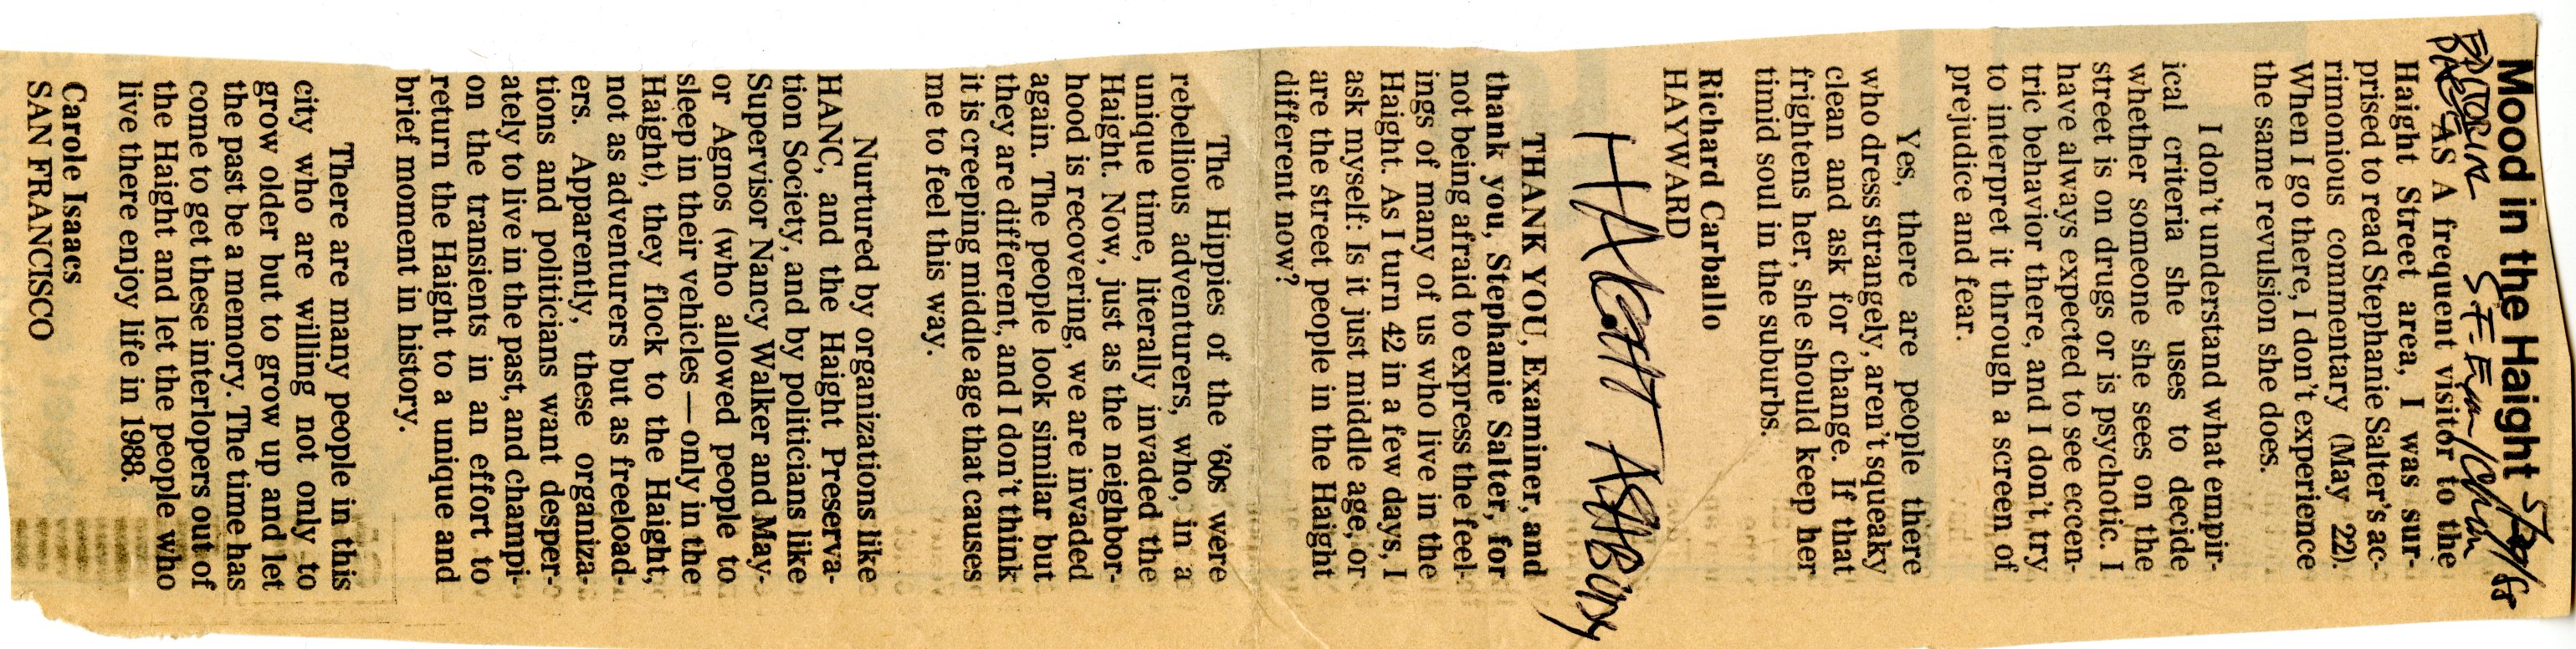 Mood in the Haight
EDITORIAL
PAGE
S.F. Exm/Chron
AS A frequent visitor to the
Haight Street area, I was sur-
prised to read Stephanie Salter's ac-
rimonious commentary (May 22).
When I go there, I don't experience
the same revulsion she does.
I don't understand what empir-
ical criteria she uses to decide
whether someone she sees on the
street is on drugs or is psychotic. I
have always expected to see eccen-
tric behavior there, and I don't try
to interpret it through a screen of
prejudice and fear.
Yes, there are people there
who dress strangely, aren't squeaky
clean and ask for change. If that
frightens her, she should keep her
timid soul in the suburbs.
Richard Carballo
HAYWARD
HAIGHT ASHBURY
THANK YOU, Examiner, and
thank you, Stephanie Salter, for
not being afraid to express the feel-
ings of many of us who live in the
Haight. As I turn 42 in a few days, I
ask myself: Is it just middle age, or
are the street people in the Haight
different now?
The Hippies of the '60s were
rebellious adventurers, who, in a
unique time, literally invaded the
Haight. Now, just as the neighbor-
hood is recovering, we are invaded
again. The people look similar but
they are different, and I don't think
it is creeping middle age that causes
me to feel this way.
Nurtured by organizations like
HANC, and the Haight Preserva-
tion Society, and by politicians like
Supervisor Nancy Walker and May-
or Agnos (who allowed people to
sleep in their vehicles — only in the
Haight), they flock to the Haight,
not as adventurers but as freeload-
ers. Apparently, these organiza-
tions and politicians want desper-
ately to live in the past, and champi-
on the transients in an effort to
return the Haight to a unique and
brief moment in history.
There are many people in this
city who are willing not only to
grow older but to grow up and let
the past be a memory. The time has
come to get these interlopers out of
the Haight and let the people who
live there enjoy life in 1988.
Carole Isaacs
SAN FRANCISCO